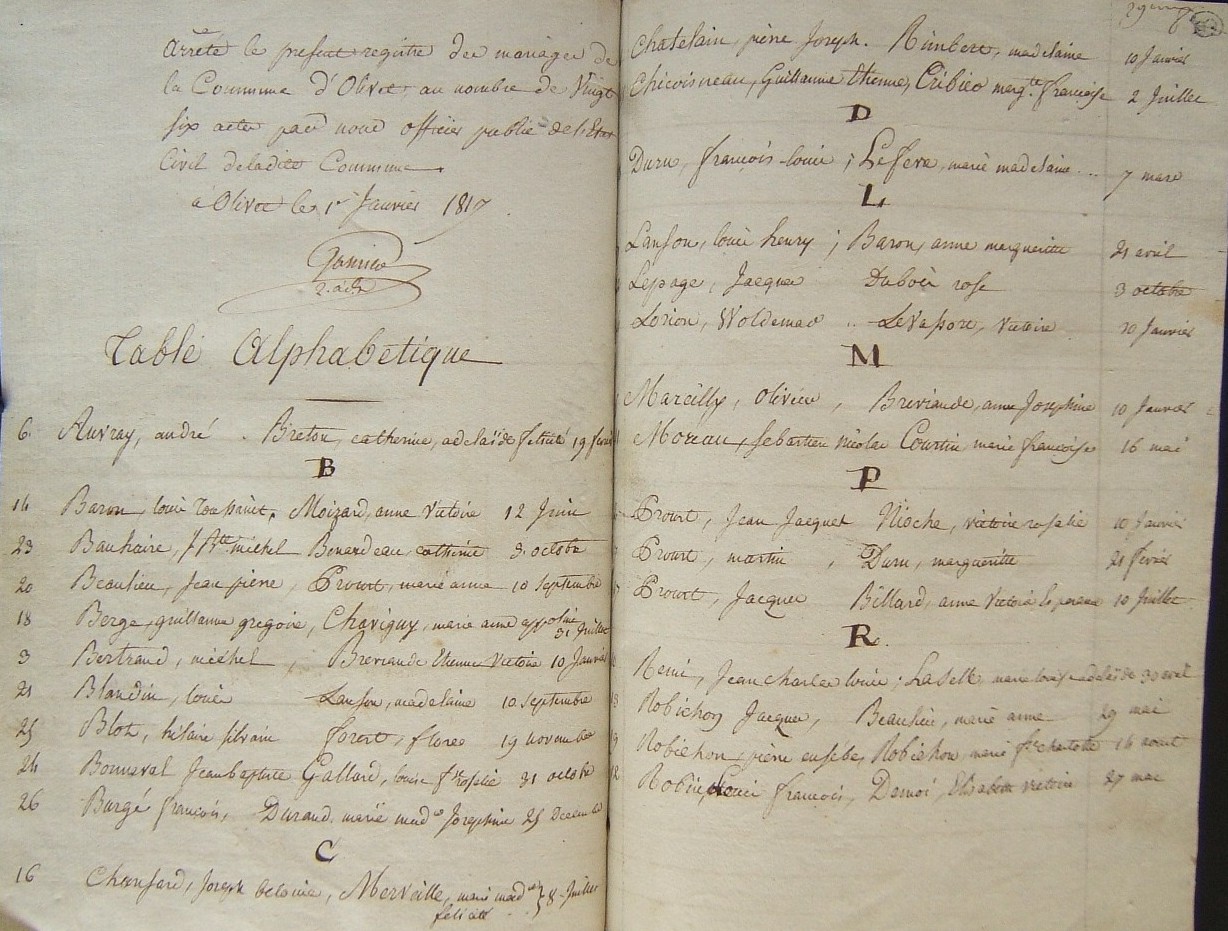 arrêté le present registre des mariages de
la Commune d'Olivet au nombre de Vingt
six actes par nous officier public de l'Etat
Civil de ladite Commune.
à Olivet le 1er Janvier 1817.
2. adt
Table Alphabetique
6 Auvray, andré . Breton, catherine, adelaïde felicité 19 fevrier
B
14 Baron, louis Toussaint, Moizard, anne Victoire 12 Juin
23 Bauhaire, J Bte michel Benardeau catherine 3 octobre
20 Beaulieu, Jean pierre, Prouet, marie anne 10 septembre
18 Berge, guillaume gregoire, Chavigny, marie anne appoline
31 Juillet
3 Bertrand, michel, Breviande Etienne Victoire 10 Janvier
21 Blandin, louis Lanson, madelaine 10 septembre
25 Blot, hilaire silvain foret, flore 19 novembre
24 Bonneval Jean baptiste Gallard, louise fse rosalie 31 octobre
26 Burgé françois, Durand, marie madne Josephine 25 Decembre
C
16 Chansard, Joseph Marveille, marie madne } 8 Juillet
felicité
Chatelain, pierre Joseph. Rimbert, madelaine 10 Janvier
Chicoisneau, Guillaume Etienne, Cribier margte françoise 2 Juillet
D
Duru, françois louis ; Lefevre, marie madelaine ... 7 mars
L
Lanson, louis henry ; Baron, anne margueritte 21 avril
Lepage, Jacques Dubois rose 3 octobre
Lorion, Woldemar .. Levassore, Victoire 30 Janvier
M
Marcilly, Olivier, Breviande, anne Josephine 10 Janvier
Moreau, sebastien nicolas Courtin marie françoise 16 mai
P
Prouet, Jean Jacques Rioche, victoire rosalie 10 Janvier
Prouet, martin, Duru, margueritte 21 fevrier
Prouet, Jacques Billard, anne Victoire 10 Juillet
R.
Remi, Jean charles louis ; Laselle marie louise adelaïde 30 avril
Robichon Jacques, Beaulieu, marie anne 29 mai
Robichon, pierre eusebe, Robichon, marie fse charlotte 14 aout
Robin, Louis françois, Demoi, Elisabeth victoire 27 mai